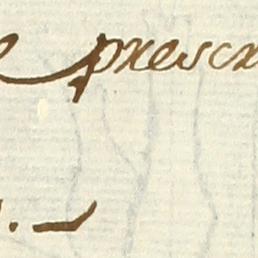 e prescr
. -